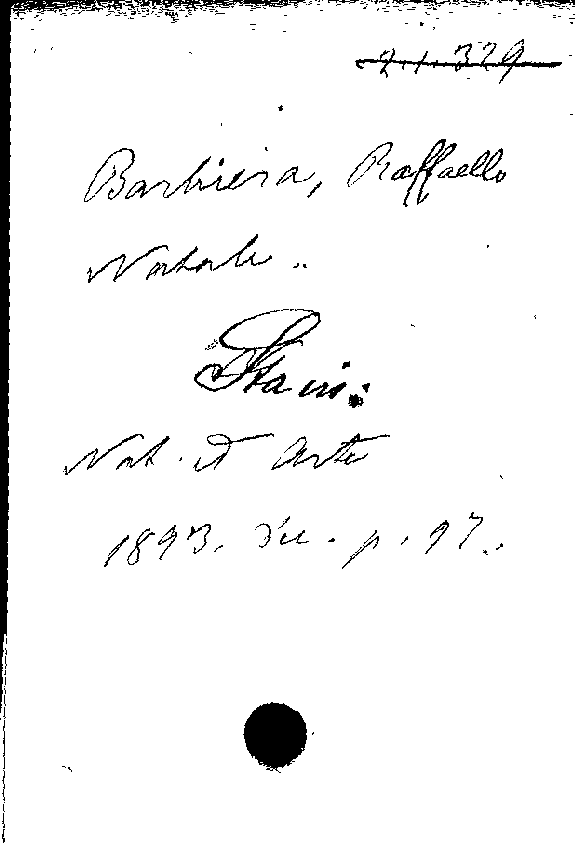 2.1.329
Barbiera, Raffaello
Natale.
Nat. et Arte
1893. Dic. p. 97.